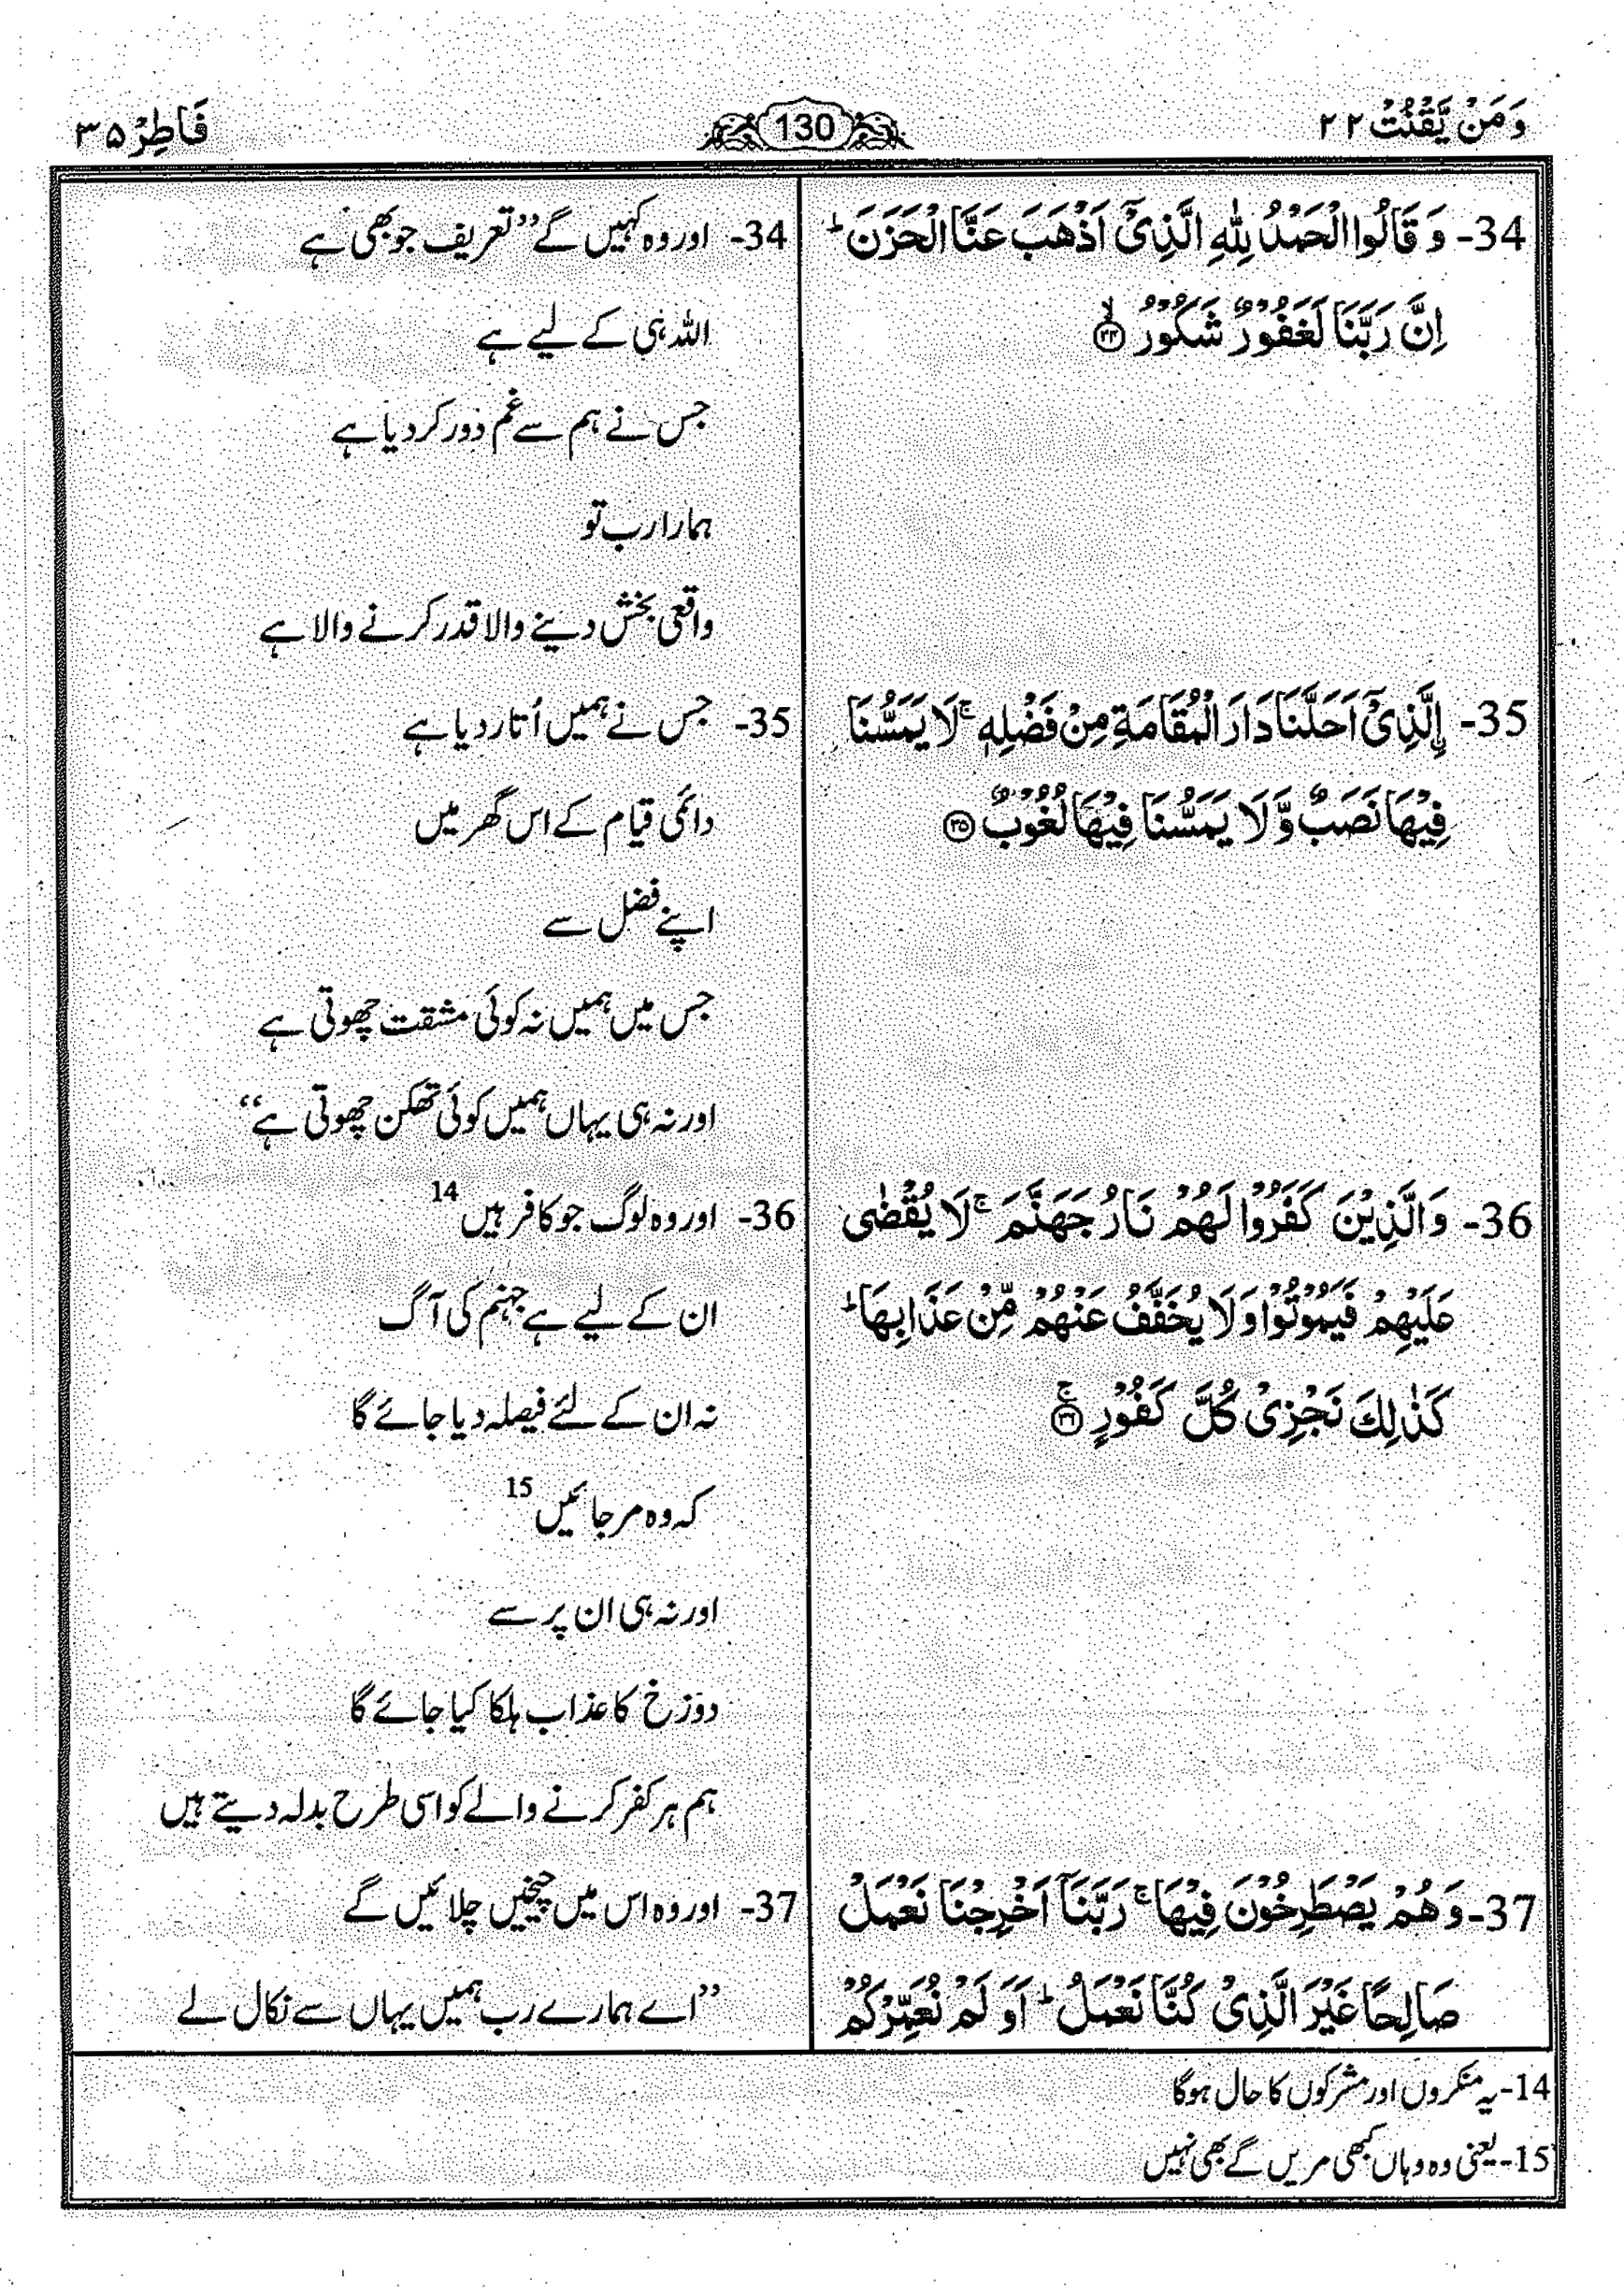 وَمَنْ يَّقْنُتْ ۲۲
130
فَاطِر ۳۵
34- وَ قَالُوا الْحَمْدُ لِلّٰهِ الَّذِيْۤ اَذْهَبَ عَنَّا الْحَزَنَ ؕ
اِنَّ رَبَّنَا لَغَفُوْرٌ شَكُوْرُ ۙ﴿۳۴﴾
35- ۨالَّذِيْۤ اَحَلَّنَا دَارَ الْمُقَامَةِ مِنْ فَضْلِهٖ ۚ لَا يَمَسُّنَا
فِيْهَا نَصَبٌ وَّ لَا يَمَسُّنَا فِيْهَا لُغُوْبٌ ﴿۳۵﴾
36- وَ الَّذِيْنَ كَفَرُوْا لَهُمْ نَارُ جَهَنَّمَ ۚ لَا يُقْضٰى
عَلَيْهِمْ فَيَمُوْتُوْا وَ لَا يُخَفَّفُ عَنْهُمْ مِّنْ عَذَابِهَا ؕ
كَذٰلِكَ نَجْزِيْ كُلَّ كَفُوْرٍ ۚ﴿۳۶﴾
37- وَ هُمْ يَصْطَرِخُوْنَ فِيْهَا ۚ رَبَّنَاۤ اَخْرِجْنَا نَعْمَلْ
صَالِحًا غَيْرَ الَّذِيْ كُنَّا نَعْمَلُ ؕ اَوَ لَمْ نُعَمِّرْكُمْ
34- اور وہ کہیں گے ’’تعریف جو بھی ہے
اللہ ہی کے لیے ہے
جس نے ہم سے غم دور کر دیا ہے
ہمارا رب تو
واقعی بخش دینے والا قدر کرنے والا ہے
35- جس نے ہمیں اُتار دیا ہے
دائمی قیام کے اس گھر میں
اپنے فضل سے
جس میں ہمیں نہ کوئی مشقت چھوتی ہے
اور نہ ہی یہاں ہمیں کوئی تھکن چھوتی ہے‘‘
36- اور وہ لوگ جو کافر ہیں 14
ان کے لیے ہے جہنم کی آگ
نہ ان کے لئے فیصلہ دیا جائے گا
کہ وہ مر جائیں 15
اور نہ ہی ان پر سے
دوزخ کا عذاب ہلکا کیا جائے گا
ہم ہر کفر کرنے والے کو اسی طرح بدلہ دیتے ہیں
37- اور وہ اس میں چیخیں چلائیں گے
’’اے ہمارے رب ہمیں یہاں سے نکال لے
14- یہ منکروں اور مشرکوں کا حال ہوگا
15- یعنی وہ وہاں کبھی مریں گے بھی نہیں